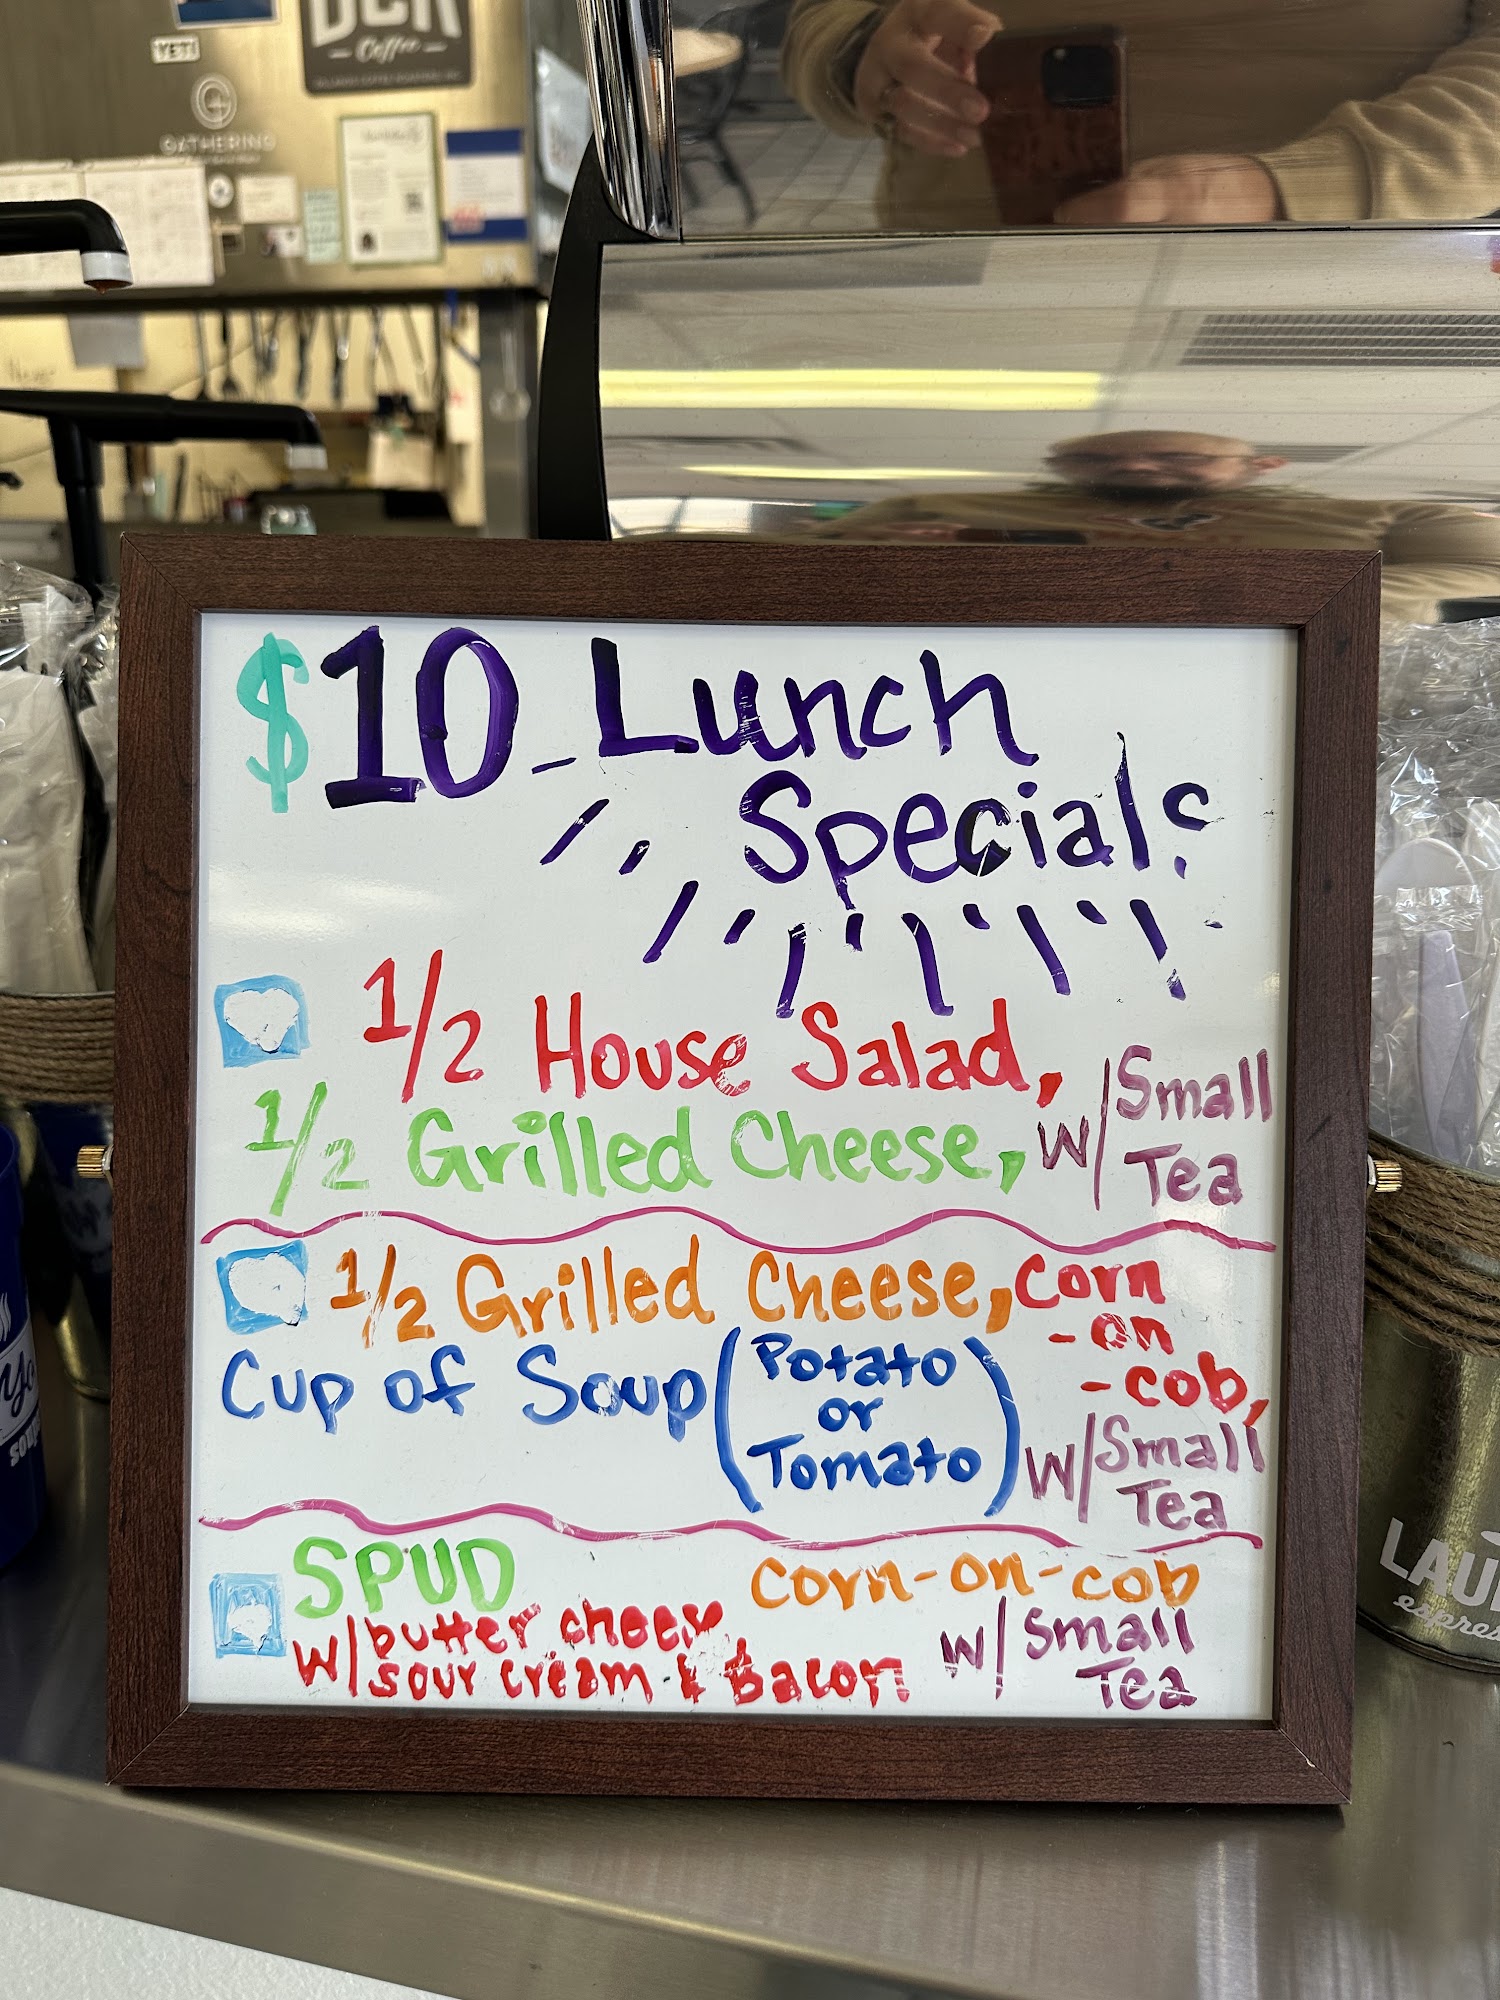 DCR
Coffee
YETI
GATHERING
$10 Lunch
Specials
1/2 House Salad,
1/2 Grilled Cheese, w/ Small
Tea
1/2 Grilled Cheese, corn
-on
-cob,
Cup of Soup (Potato
or
Tomato)
w/ Small
Tea
SPUD
w/ butter cheese
sour cream & Bacon
corn-on-cob
w/ Small
Tea
LAU
espres